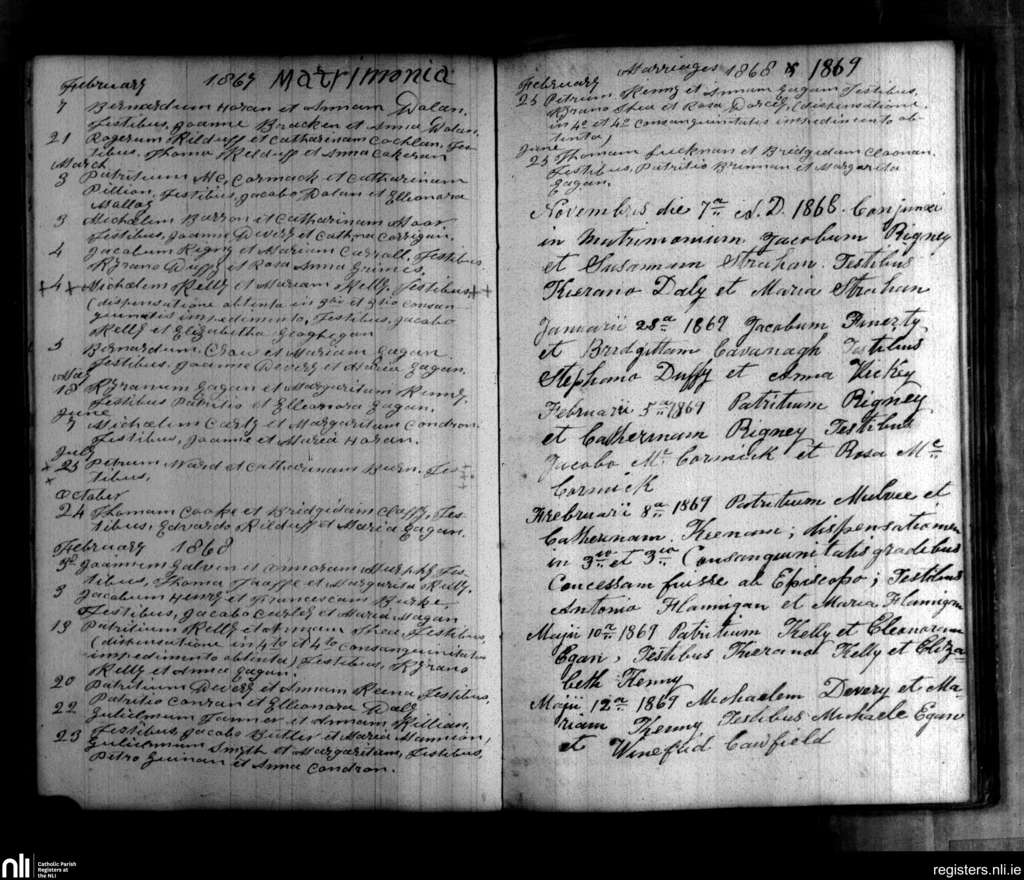 February 1867 Matrimonia
7 Bernardum Horan et Annam Dolan,
Testibus, Joanne Bracken et Anna Dolan,
21 Rogerum Kilduff et Catharinam Coghlan, Tes-
tibus, Thoma Kilduff et Anna
March
3 Patritium Mc, Cormack et Catharinam
Pillion, Testibus, Jacobo Dolan et Ellionora
Malloy
3 Michælim Barron et Catharinam Hoar,
Testibus, Joanne Devery et Cathna Corrigan,
4 Jacobum Rigny et Mariam Carroll, Testibus
Kyrano Duffy et Rosa Anna Grimes,
4 Michælem Kelly et Mariam Kelly, Testibus,
(dispensatione obtenta in et consan-
guinitatis impedimento, Testibus, Jacobo
Kelly et Elizabitha Geoghegan
5 Bernardum, et Mariam Eagan
Testibus, Joanne Devery et Maria Eagan,
May
18 Kyranum Eagan et Margaritam Kenny,
Testibus Patritio et Elleonora Eagan,
June
7 Michælim Carty et Margaritam Condron
Testibus, Joannie et Maria Horan.
July
25 Petrum Ward et Catharinam Burn, Tes-
tibus,
October
24 Thomam Cooke et Bridgidam Claffy, Tes-
tibus, Edvardo Kilduff et Maria Eagan,
February 1868
Joannim Galvin et Honoram Murphy, Tes-
tibus, Thoma Taaffe et Margarita Kelly,
3 Jacobum Henry et Franciscam Burke,
Testibus, Jacobo Curley et Maria Magan
13 Patritium Kelly et Annam Shea, Testibus,
(dispensatione in 4to et 4to Consanguinitatis
impedimento obtenta) Testibus, Kyrano
Kelly et Anna Eagan,
20 Patritium Devery et Annam Keena, Testibus,
Patritio Conran et Ellionora Daly
22 Gulielmum Tanner et Annam Killian,
Testibus, Jacobo Butler et Maria Mannion,
23 Gulielmum Smyth et Margaritam, Testibus,
Petro Guinan et Anna Condron.
February Marriages 1868 & 1869
25 Petrum, Kenny et Annam Eagan Testibus,
Kyrano Shea et Rosa Dorcey, (dispensatione
in 4o et 4o Consanguinitatis impedimento ob-
tenta)
June
25 Thomam Luckman et Bridgidam Cloonan.
Testibus, Patritio Brinnan et Margarita
Eagan,
Novembris die 7a A.D. 1868. Conjunxi
in Matrimonium Jacobum Rigney
et Susannam Strahan. Testibus
Kierano Daly et Maria Strahan
Januarii 28a 1869 Jacobum Finerty
et Bridgittam Cavanagh Testibus
Stephano Duffy et Anna Hickey
Februarii 5a 1869 Patritium Rigney
et Catherinam Rigney Testibus
Jacobo Mc Cormick et Rosa Mc
Cormick
Frebruarii 8a 1869 Patritium Mulvee et
Catherinam. Keenan; dispensationem
in 3io et 3io Consanguinitatis gradibus
Concessam fuisse ab Episcopo; Testibus
Antonio Flannigan et Maria Flannigan
Majii 10a 1869 Patritium Kelly et Eleonoram
Egan, Testibus Kierano Kelly et Eliza-
beth Kenny
Majii 12a 1869 Michaelem Devery et Ma-
riam Kenny Testibus Michaele Egan
et Winefrid Cawfield
nli
Catholic Parish
Registers at
the NLI
registers.nli.ie